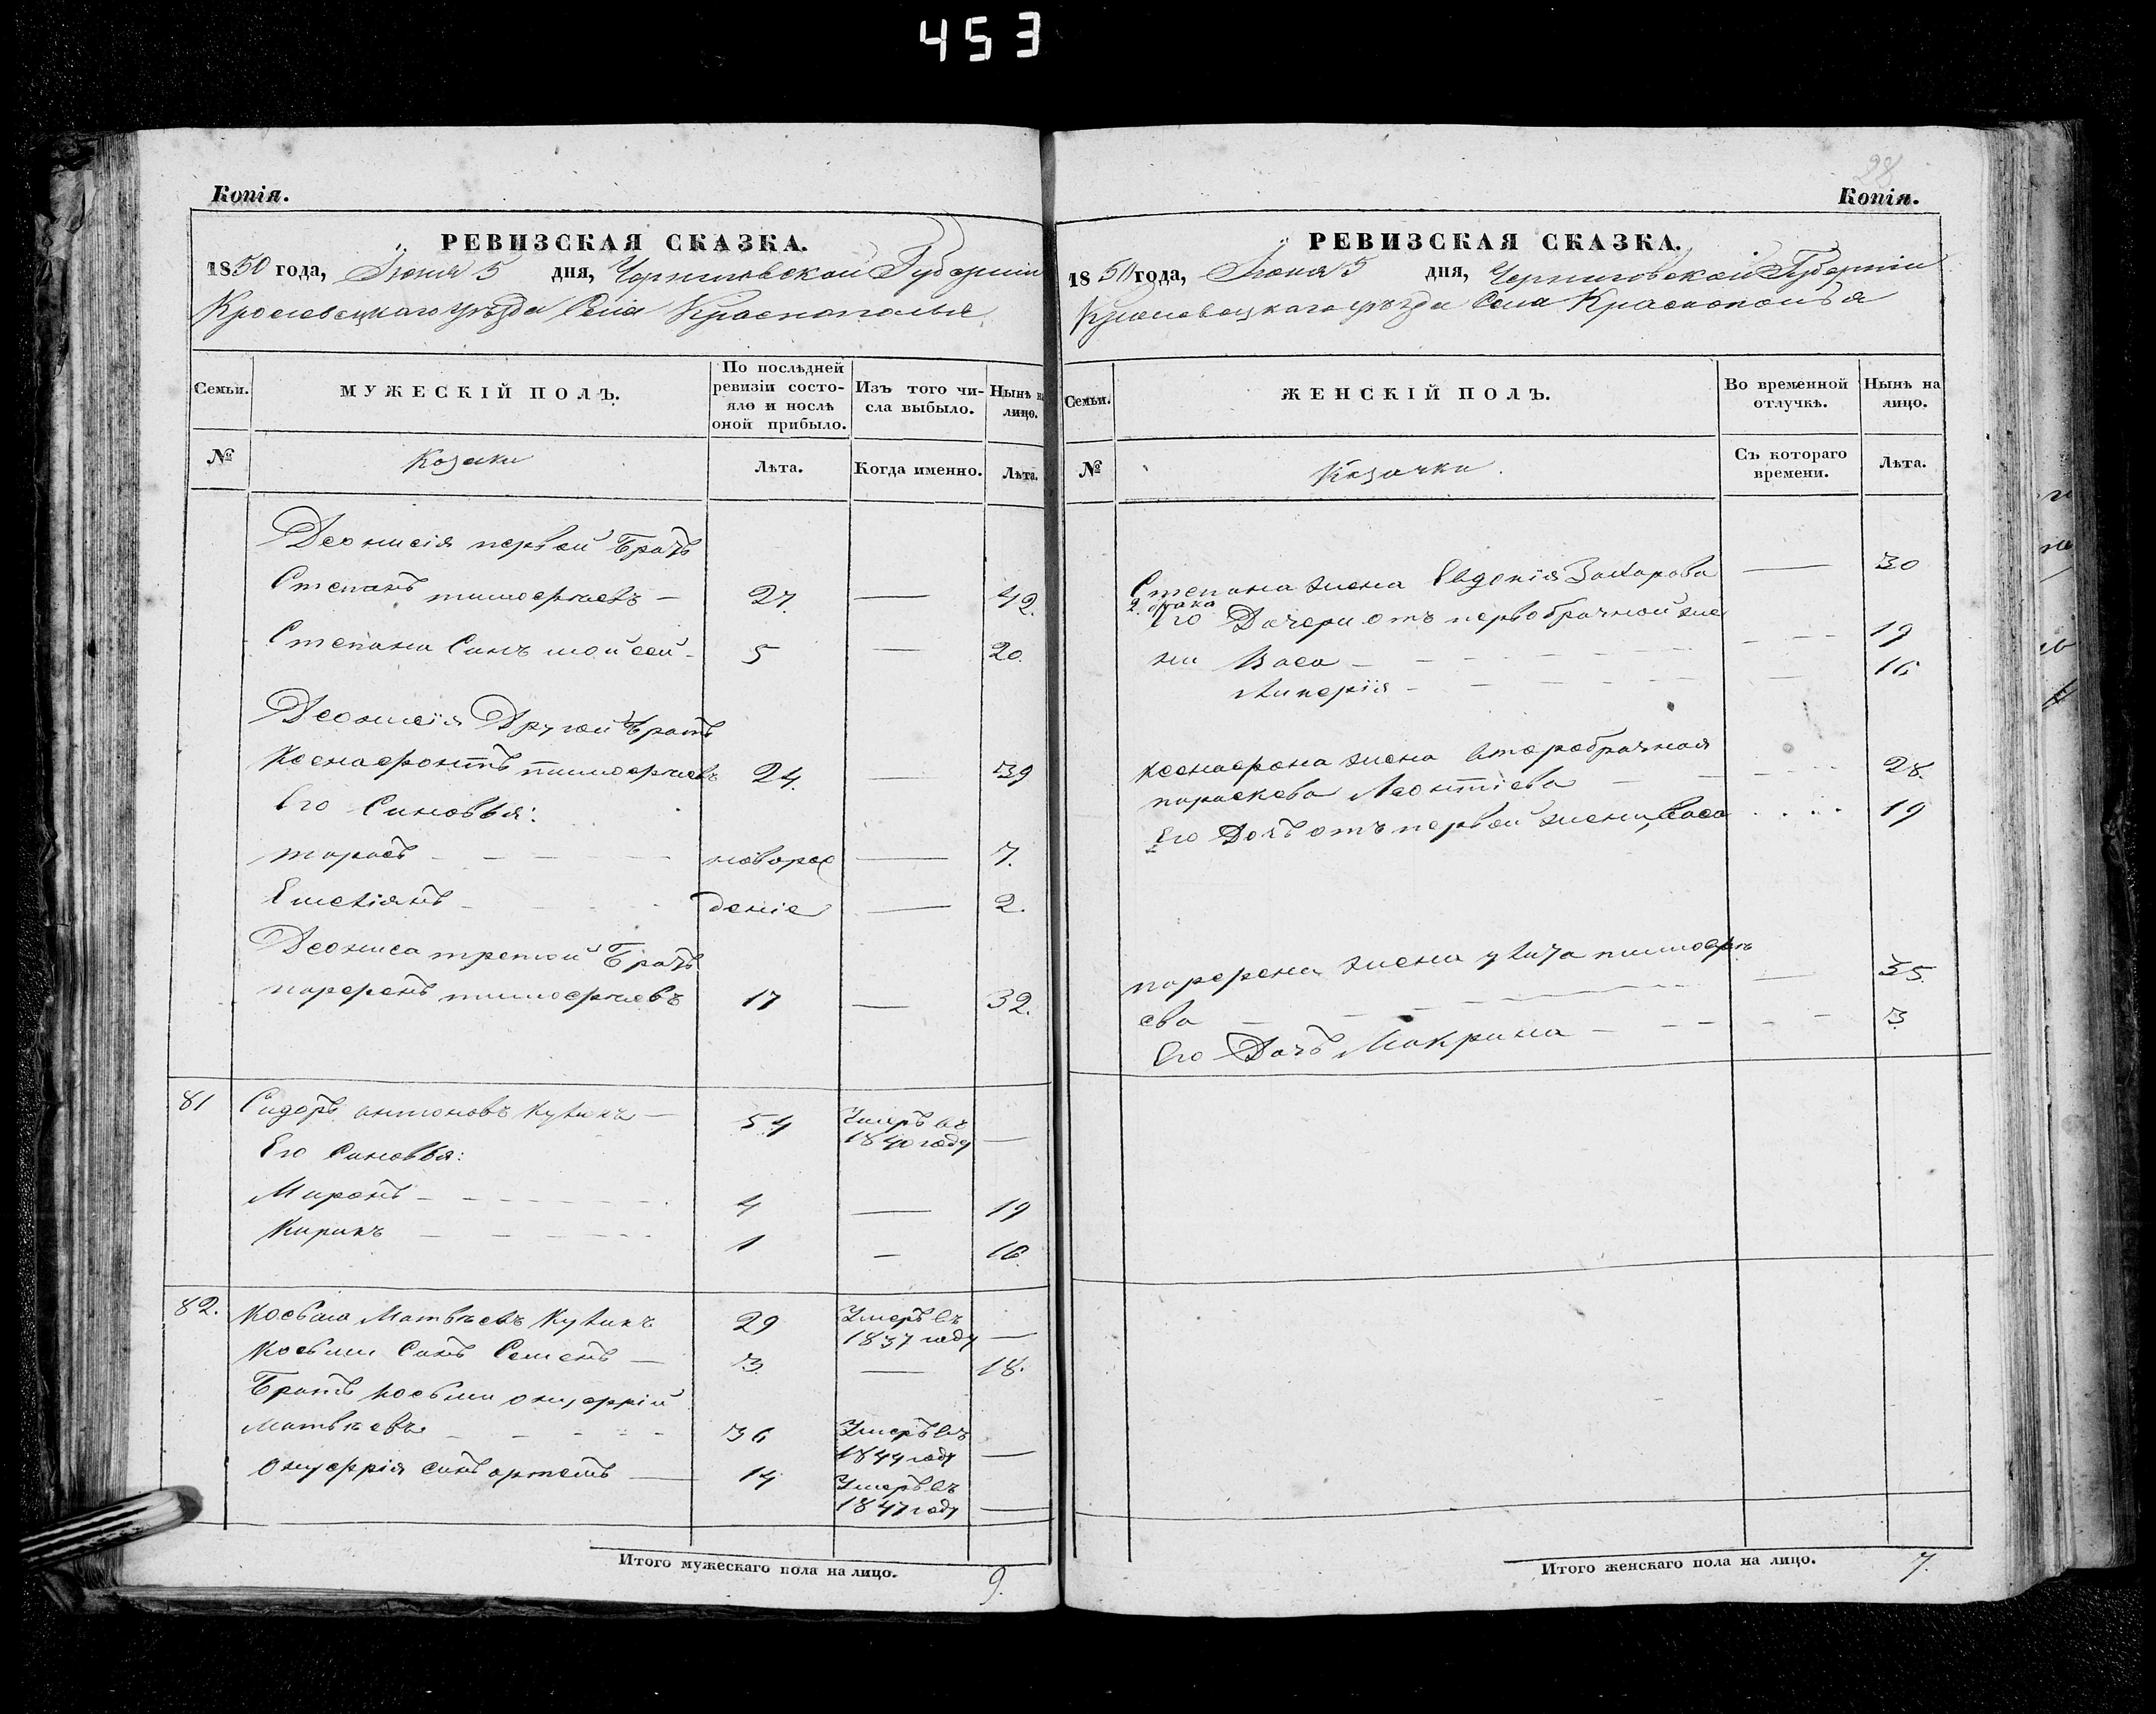 453
Копія.
РЕВИЗСКАЯ СКАЗКА.
1850 года, Іюня 5 дня, Черниговской Губерніи
Кролевецкаго уѣзда Села Краснополья
Семьи.
МУЖЕСКІЙ ПОЛЪ.
По послѣдней ревизіи состояло и послѣ оной прибыло.
Изъ того числа выбыло.
Нынѣ на лицо.
№
Козаки
Лѣта.
Когда именно.
Лѣта.
Деонисія первой Братъ
Степанъ тимофѣевъ — 27. — 42.
Степана Синъ мойсей - 5 — 20.
Деонисія Другой Братъ
Ксенофонтъ тимофѣевъ 24. — 39
Его Синовья:
тарасъ - - - - новорож — 7.
Емеліянъ - - - деніе — 2.
Деониса третой Братъ
парфенъ тимофѣевъ 17 — 32.
81 Сидоръ антоновъ Куликъ — 54 Умеръ въ
1840 году —
Его Синовья:
Миронъ - - - - 4 — 19
Кирикъ - - - - 1 — 16.
82. Косьма Матвѣевъ Куликъ 29 Умеръ въ
1837 году —
Косьми Синъ Семенъ — 3. — 18.
Братъ Косьми онуфрій
Матвѣевъ - - - - 36 Умеръ въ
1844 году —
Онуфрія синъ артемъ — 14 Умеръ въ
1847 году —
Итого мужескаго пола на лицо. 9.
28
Копія.
РЕВИЗСКАЯ СКАЗКА.
1850 года, Іюня 5 дня, Черниговской Губерніи
Кролевецкаго уѣзда Села Краснополья
Семьи.
ЖЕНСКІЙ ПОЛЪ.
Во временной отлучкѣ.
Нынѣ на лицо.
№
Козачки.
Съ котораго времени.
Лѣта.
Степана жена Евдокія Захарова — 30
2. брака
Его Дочери отъ первобрачной же
ни Васа - - - - 19
Ликерія - - - - 16
Ксенофона жена второбрачная
параскева Леонтіева - - - 28.
Его Дочъ отъ первой жени, Васа . . . . 19
парфена жена улита тимофѣ
ева - - - - 35.
Его Дочъ Макрина - - - - 3
Итого женскаго пола на лицо. 7.